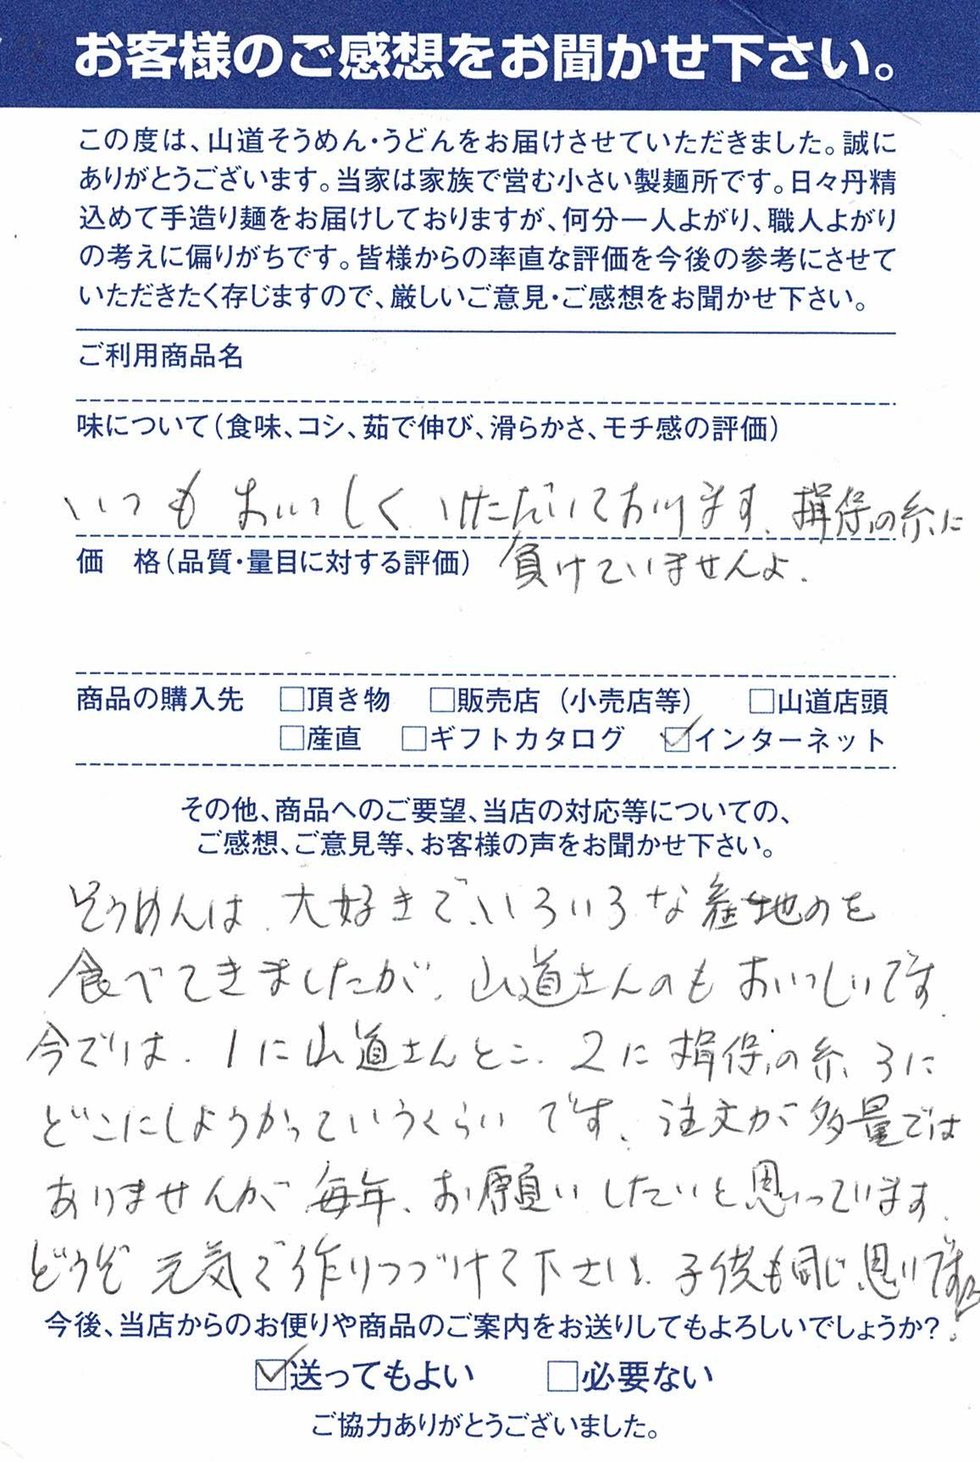 お客様のご感想をお聞かせ下さい。
この度は、山道そうめん・うどんをお届けさせていただきました。誠に
ありがとうございます。当家は家族で営む小さい製麺所です。日々丹精
込めて手造り麺をお届けしておりますが、何分一人よがり、職人よがり
の考えに偏りがちです。皆様からの率直な評価を今後の参考にさせて
いただきたく存じますので、厳しいご意見・ご感想をお聞かせ下さい。
ご利用商品名
味について(食味、コシ、茹で伸び、滑らかさ、モチ感の評価)
いつもおいしくいただいております。揖保の糸に
負けていませんよ。
価 格(品質・量目に対する評価)
商品の購入先 □頂き物 □販売店 (小売店等) □山道店頭
□産直 □ギフトカタログ ☑インターネット
その他、商品へのご要望、当店の対応等についての、
ご感想、ご意見等、お客様の声をお聞かせ下さい。
そうめんは、大好きで、いろいろな産地のを
食べてきましたが、山道さんのもおいしいです。
今では、1に山道さんとこ、2に揖保の糸、3に
どこにしようかっていうくらいです。注文が多量では
ありませんが毎年、お願いしたいと思っています。
どうぞ元気で作りつづけて下さいよ。子供も同じ思いですよ!
今後、当店からのお便りや商品のご案内をお送りしてもよろしいでしょうか?
☑送ってもよい □必要ない
ご協力ありがとうございました。